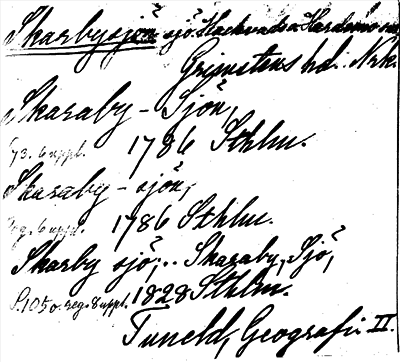 Skarbysjön sjö. Hackvads o Hardemo snr
Grimstens hd. Nrk.
Skaraby - Sjön,
73. 6 uppl. 1786 Sthlm.
Skaraby - sjön,
6 uppl. 1786 Sthlm.
Skarby sjö; .. Skaraby, Sjö,
S. 105 o. reg. 8 uppl. 1828 Sthlm.
Tuneld, Geografi II.